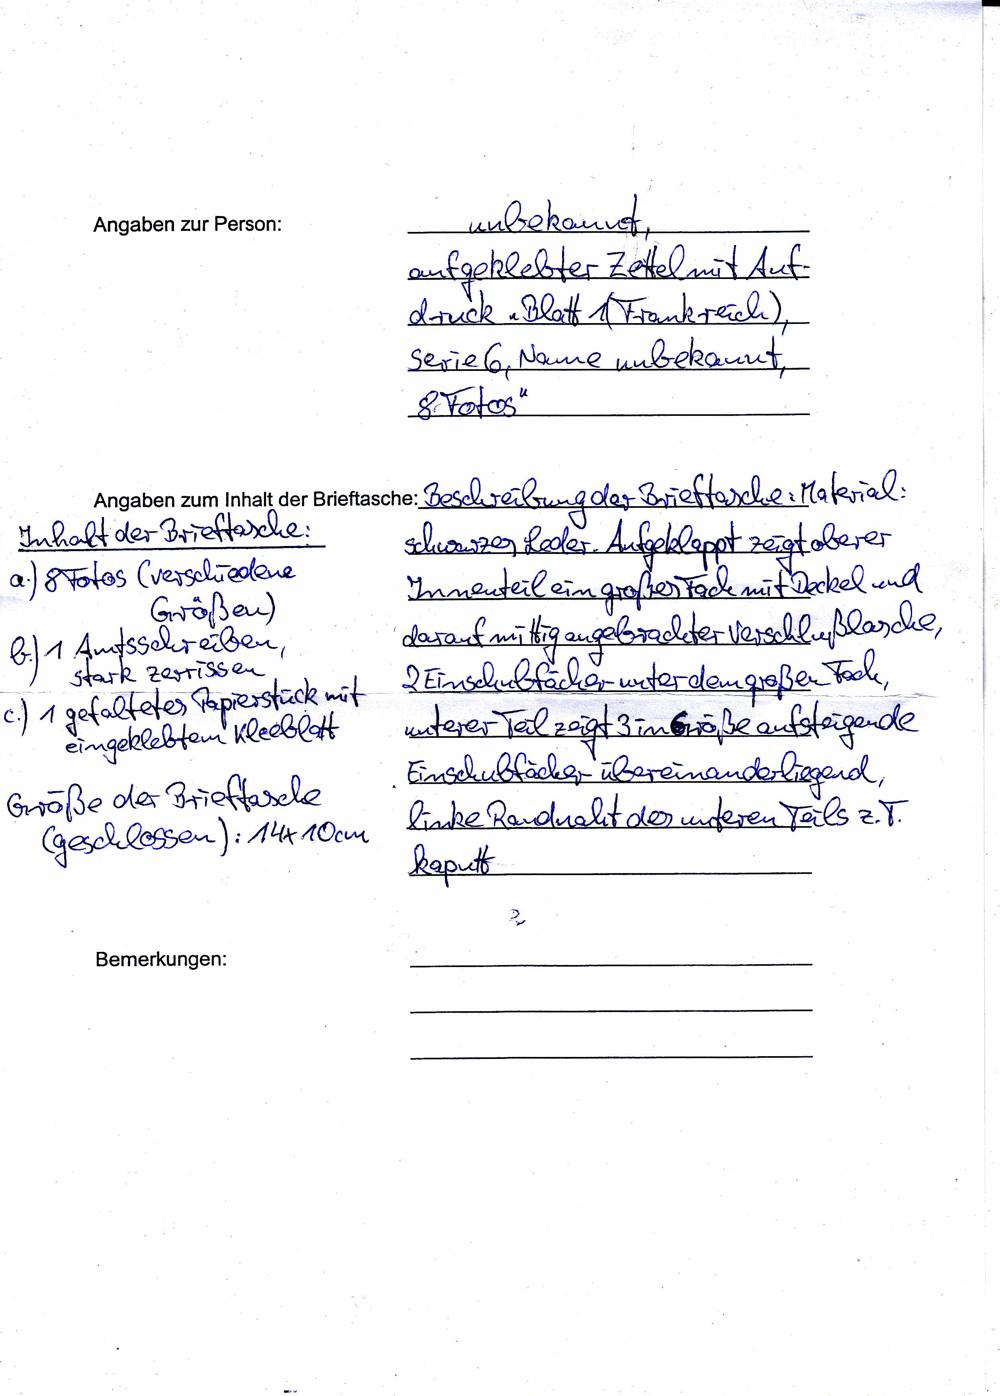 Angaben zur Person:
unbekannt,
aufgeklebter Zettel mit Auf-
druck „Blatt 1 (Frankreich),
Serie 6, Name unbekannt,
8 Fotos"
Angaben zum Inhalt der Brieftasche: Beschreibung der Brieftasche: Material:
schwarzes Leder. Aufgeklappt zeigt oberer
Innenteil ein großes Fach mit Deckel und
darauf mittig angebrachter Verschlußlasche,
2 Einschubfächer unter dem großen Fach,
unterer Teil zeigt 3 in Größe aufsteigende
Einschubfächer übereinanderliegend,
linke Randnaht des unteren Teils z.T.
kaputt
Inhalt der Brieftasche:
a.) 8 Fotos (verschiedene
Größen)
b.) 1 Amtsschreiben,
stark zerrissen
c.) 1 gefaltetes Papierstück mit
eingeklebtem Kleeblatt
Größe der Brieftasche
(geschlossen): 14x10cm
Bemerkungen: